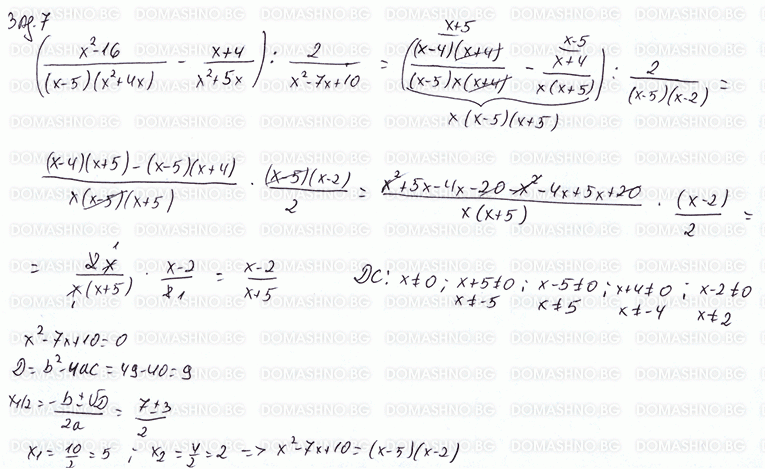 Зад. 7
(\frac{x²-16}{(x-5)(x²+4x)} - \frac{x+4}{x²+5x}) : \frac{2}{x²-7x+10} = (\frac{\overset{x+5}{(x-4)(x+4)}}{(x-5)x(x+4)} - \frac{\overset{x-5}{x+4}}{x(x+5)}) : \frac{2}{(x-5)(x-2)} =
x(x-5)(x+5)
\frac{(x-4)(x+5)-(x-5)(x+4)}{x(x-5)(x+5)} · \frac{(x-5)(x-2)}{2} = \frac{x²+5x-4x-20-x²-4x+5x+20}{x(x+5)} · \frac{(x-2)}{2} =
= \frac{2x}{x(x+5)} · \frac{x-2}{2} = \frac{x-2}{x+5} ДС: x≠0; x+5≠0; x-5≠0; x+4≠0; x-2≠0
x≠-5 x≠5 x≠-4 x≠2
x²-7x+10=0
D=b²-4ac=49-40=9
x₁/₂=\frac{-b±√D}{2a}=\frac{7±3}{2}
x₁=\frac{10}{2}=5 ; x₂=\frac{4}{2}=2 => x²-7x+10=(x-5)(x-2)
DOMASHNO.BG